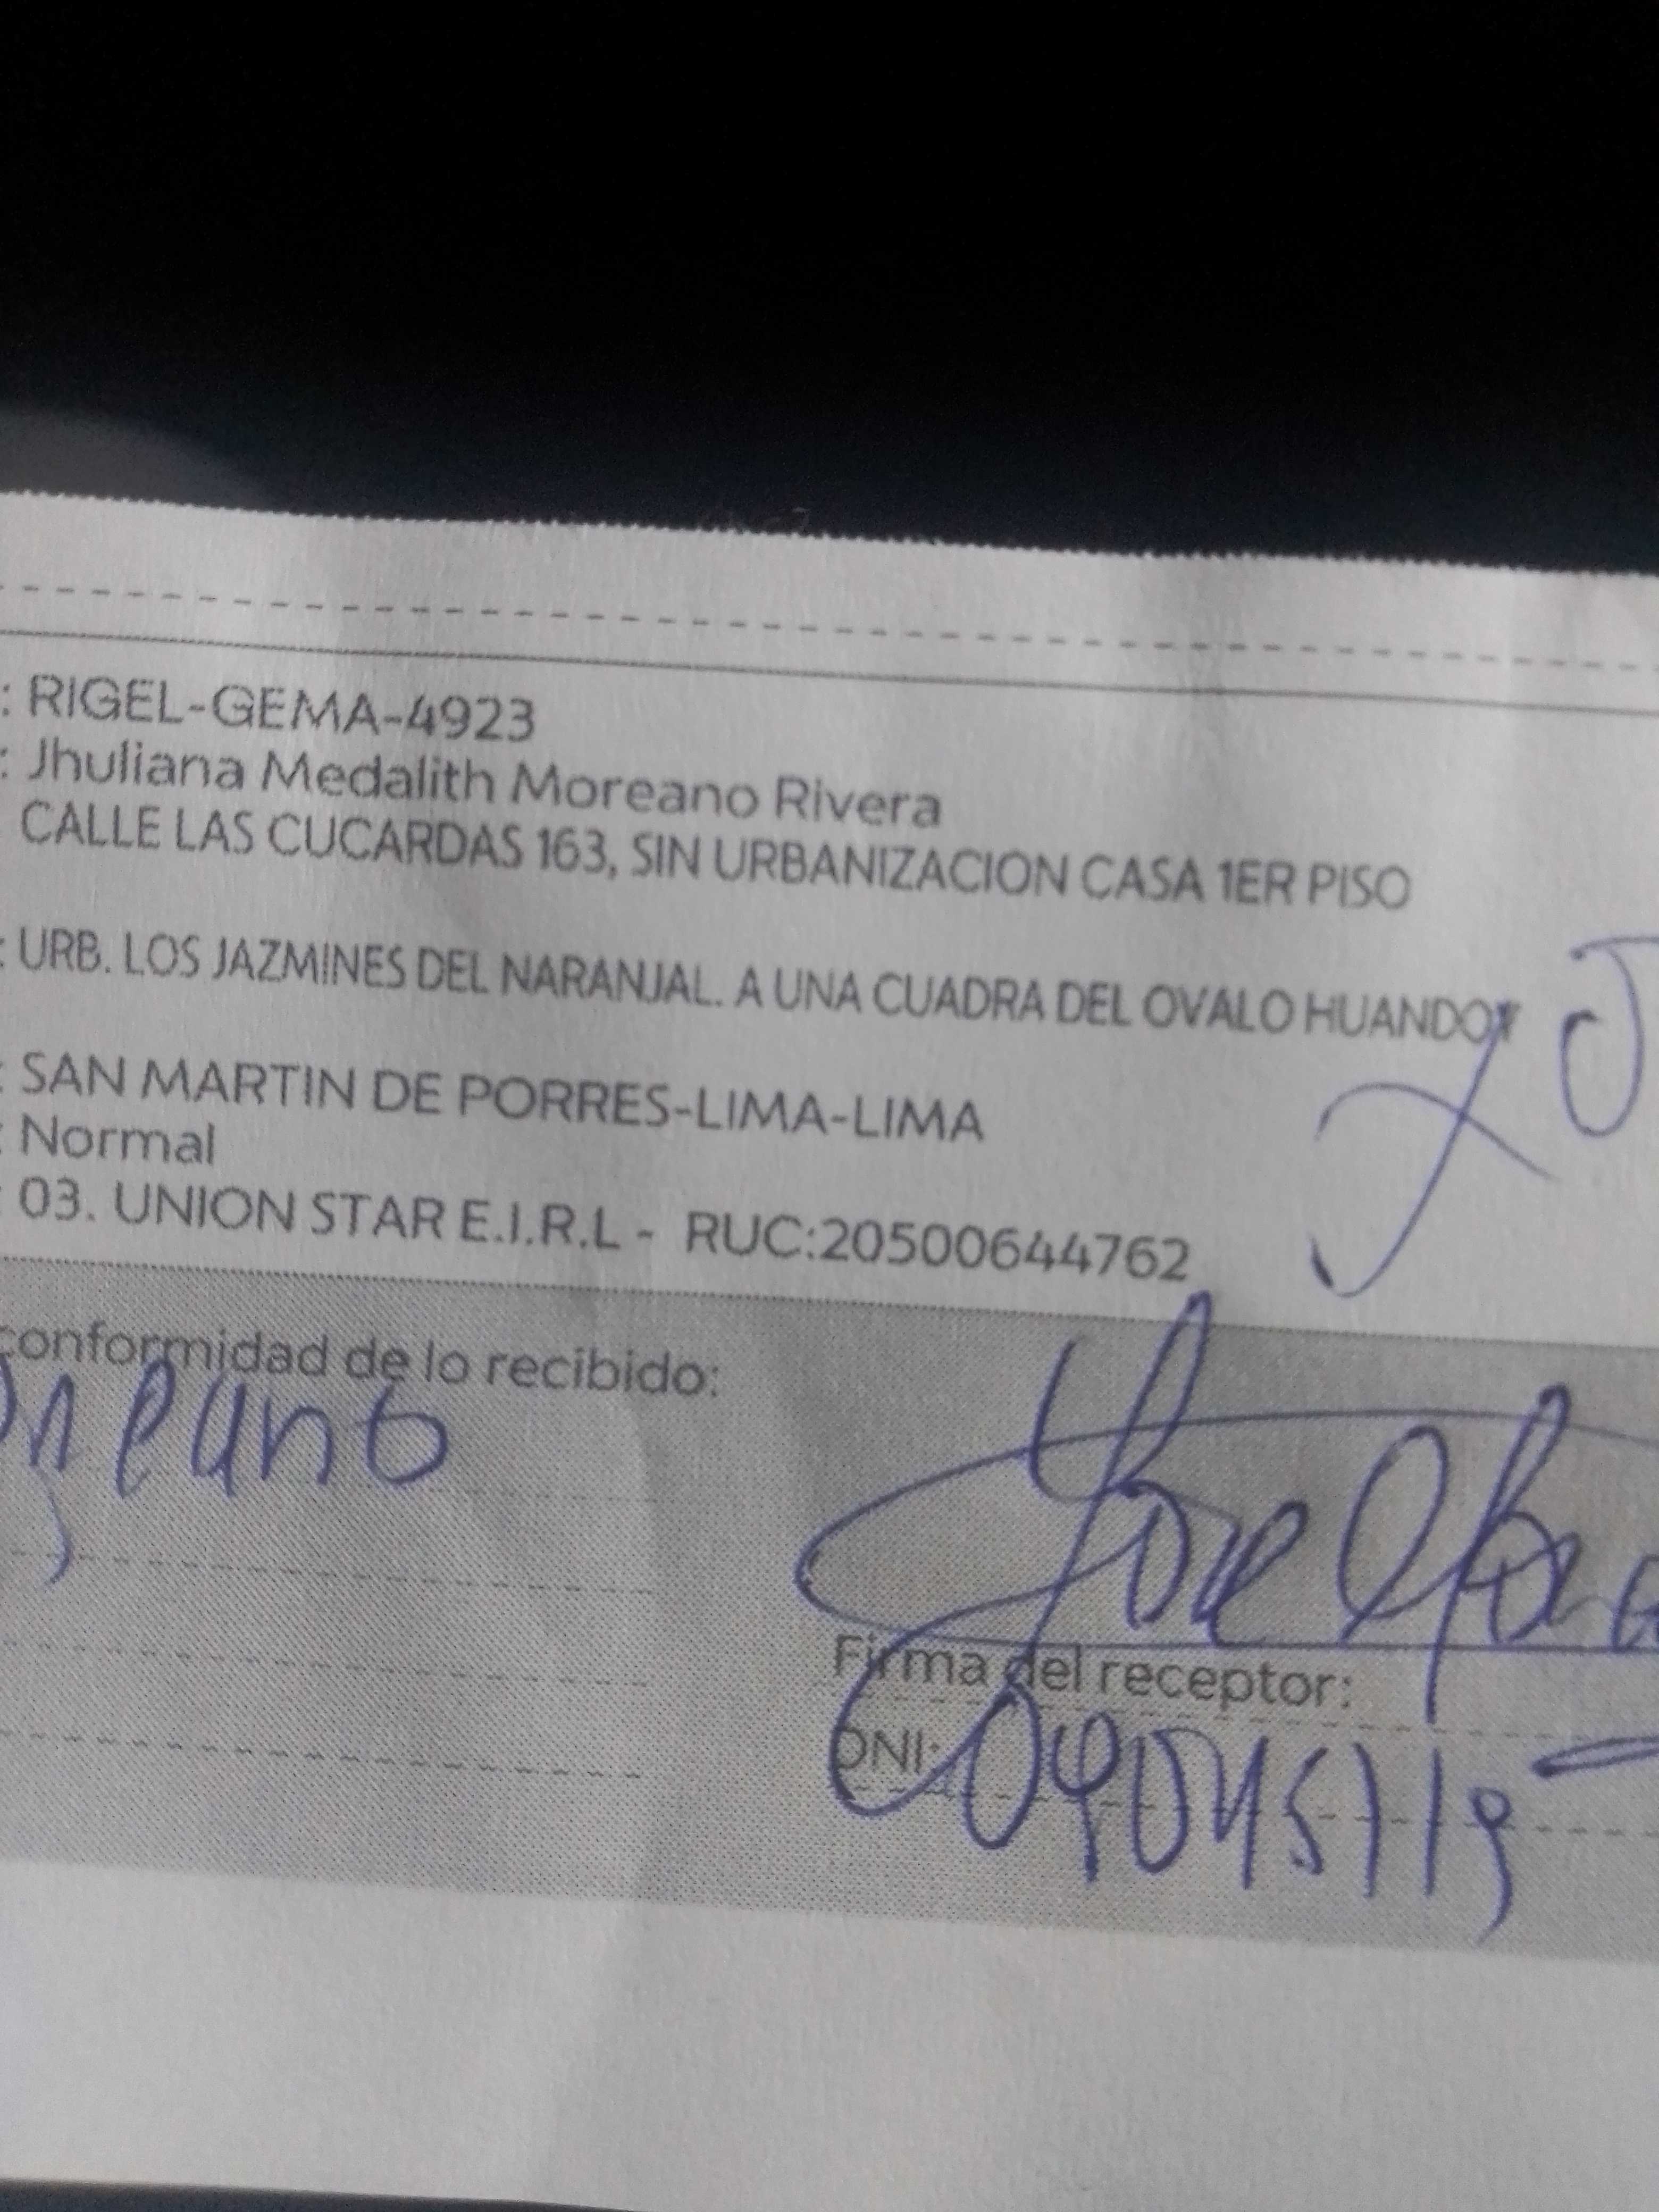 : RIGEL-GEMA-4923
: Jhuliana Medalith Moreano Rivera
CALLE LAS CUCARDAS 163, SIN URBANIZACION CASA 1ER PISO
: URB. LOS JAZMINES DEL NARANJAL. A UNA CUADRA DEL OVALO HUANDOY
: SAN MARTIN DE PORRES-LIMA-LIMA
: Normal
: 03. UNION STAR E.I.R.L - RUC:20500644762
conformidad de lo recibido:
Firma del receptor:
DNI: 09045119